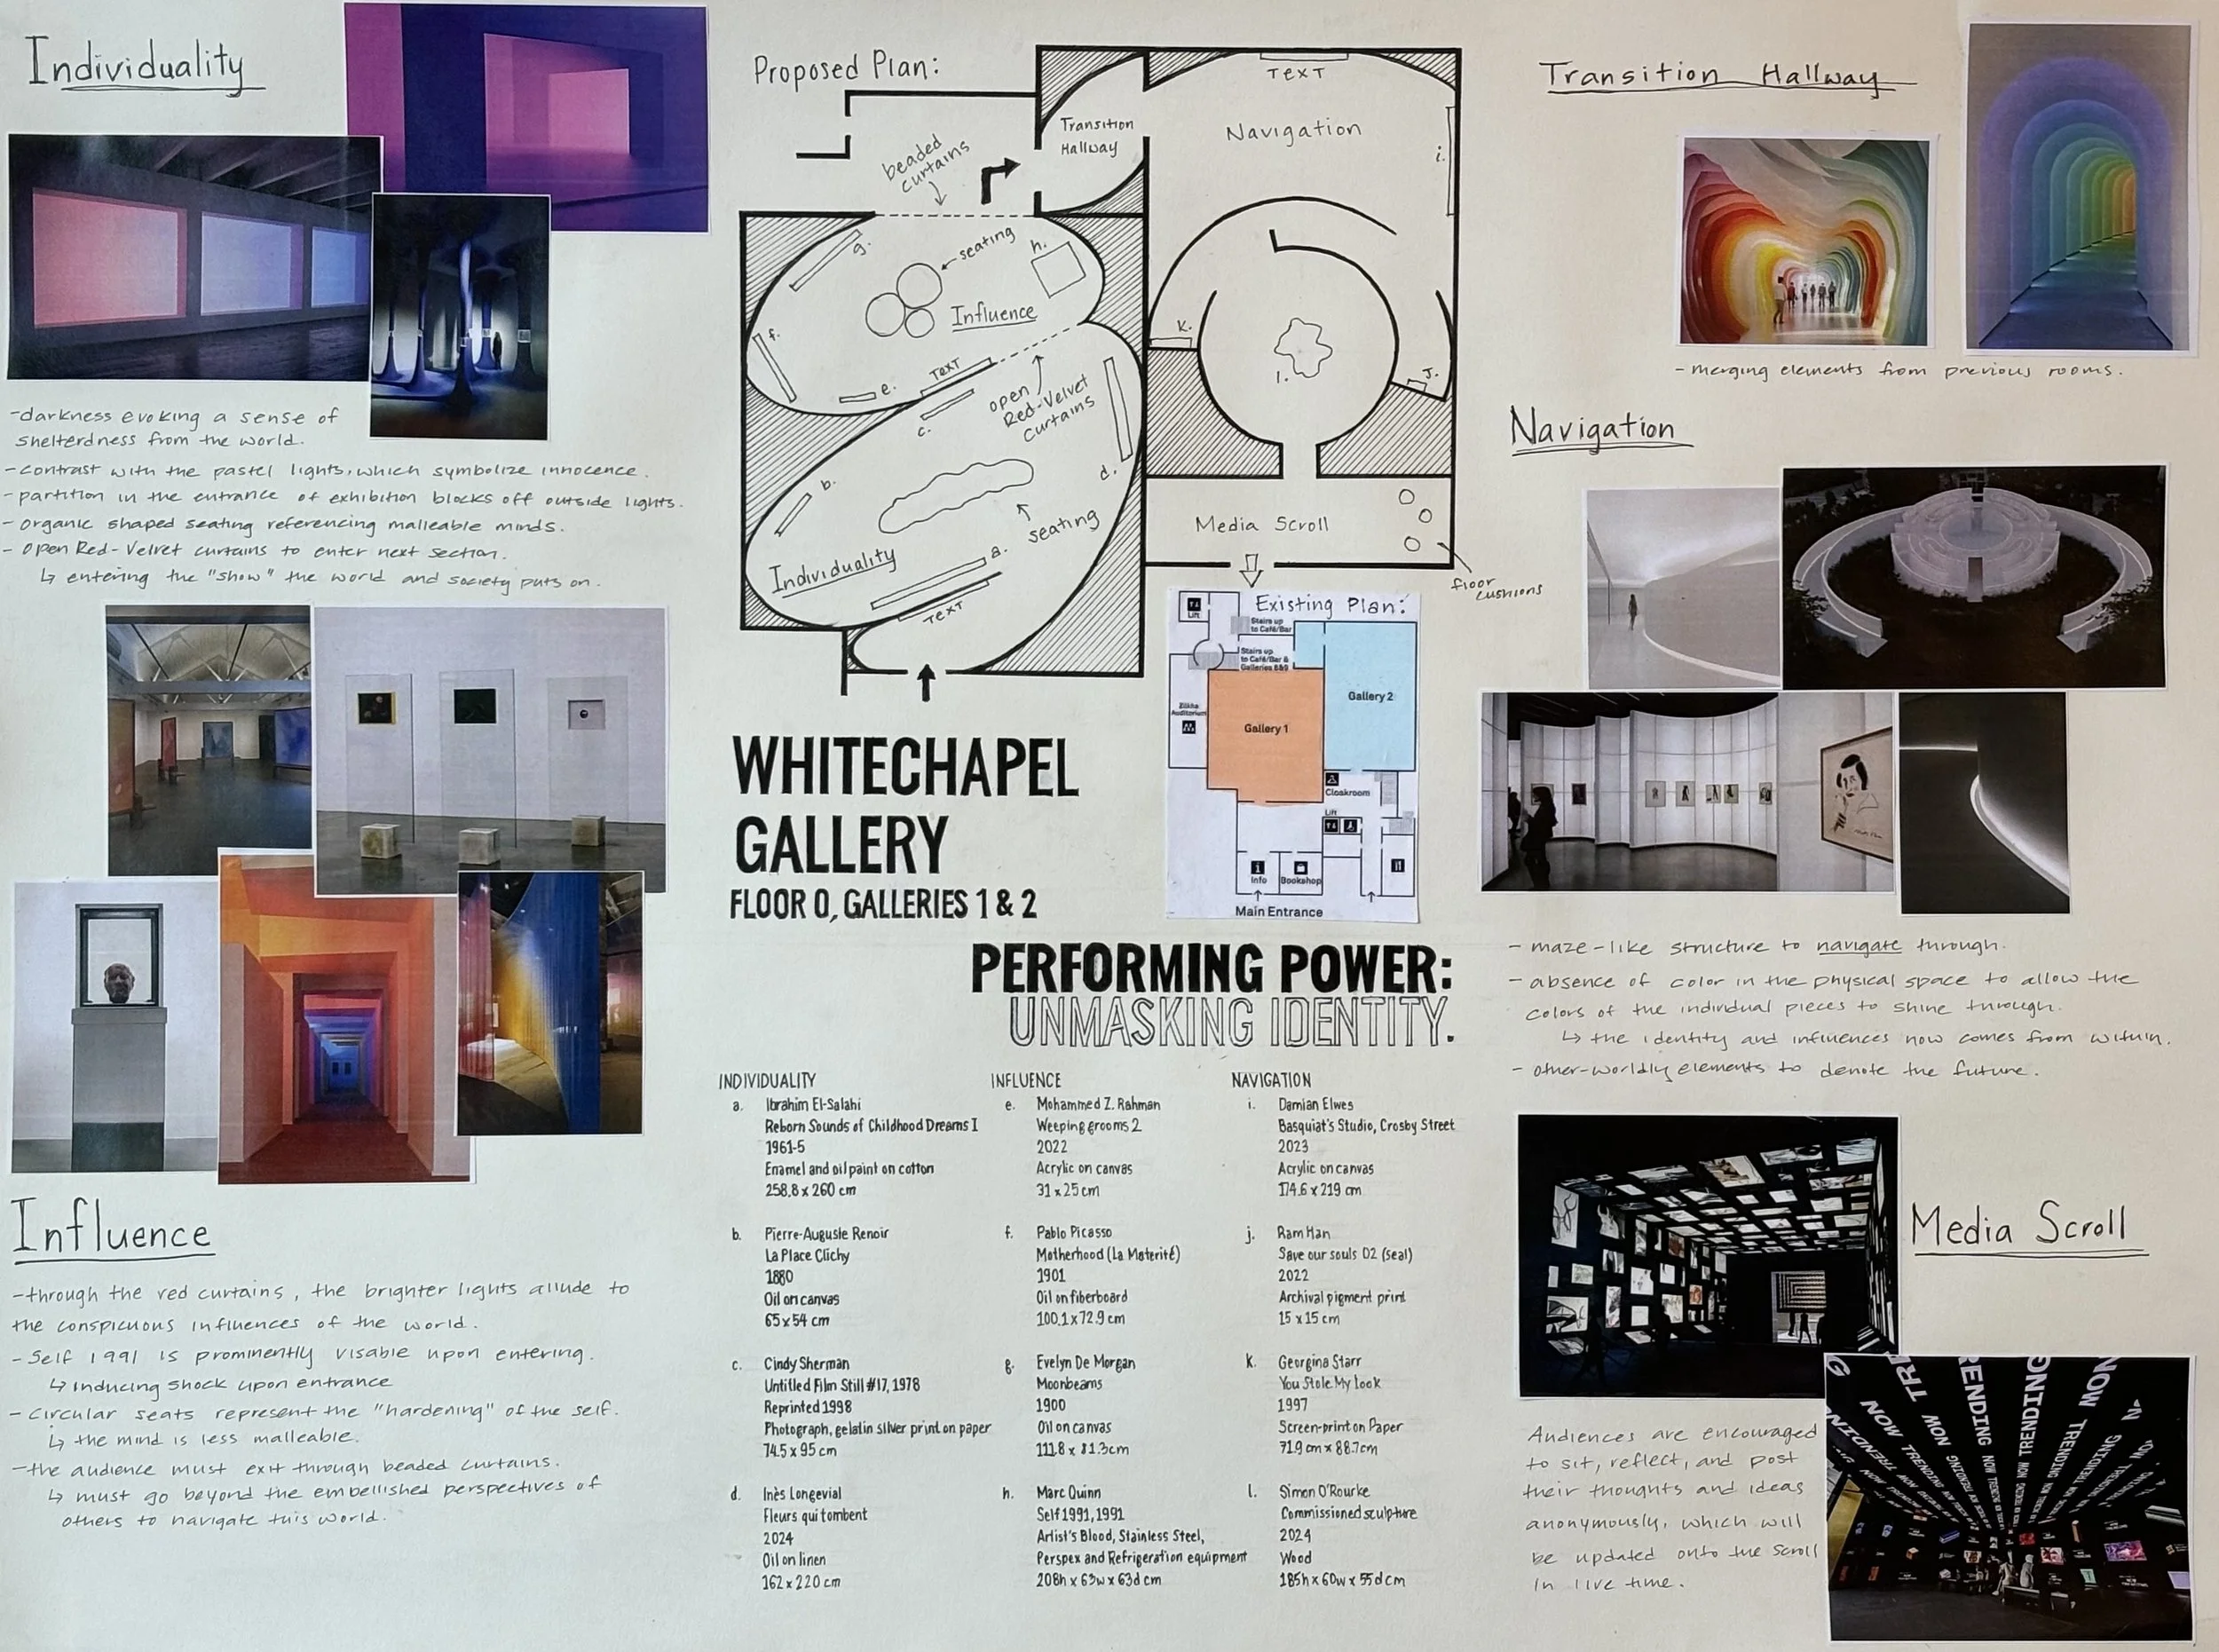 Individuality
-darkness evoking a sense of
shelterdness from the world.
-contrast with the pastel lights, which symbolize innocence.
-partition in the entrance of exhibition blocks off outside lights.
- organic shaped seating referencing malleable minds.
- open Red-Velvet curtains to enter next section.
↳ entering the "show" the world and society puts on.
Influence
-through the red curtains, the brighter lights allude to
the conspicuous influences of the world.
-Self 1991 is prominently visable upon entering.
↳ inducing shock upon entrance
- circular seats represent the "hardening" of the self.
↳ the mind is less malleable.
-the audience must exit through beaded curtains.
↳ must go beyond the embellished perspectives of
others to navigate this world.
Proposed Plan:
TEXT
Transition
Hallway
Navigation
beaded
curtains
i.
g.
seating
h.
Influence
f.
k.
e.
TEXT
c.
open
Red-Velvet
Curtains
l.
J.
d.
b.
seating
a.
Individuality
TEXT
Media Scroll
floor
cushions
Existing Plan:
Lift
Stairs up
to Café/Bar
Stairs up
to Café/Bar &
Galleries 8&9
Zilkha
Auditorium
Gallery 1
Gallery 2
Cloakroom
Lift
Info
Bookshop
Main Entrance
WHITECHAPEL
GALLERY
FLOOR 0, GALLERIES 1 & 2
PERFORMING POWER:
UNMASKING IDENTITY.
INDIVIDUALITY
a. Ibrahim El-Salahi
Reborn Sounds of Childhood Dreams I
1961-5
Enamel and oil paint on cotton
258.8 x 260 cm
b. Pierre-Auguste Renoir
La Place Clichy
1880
Oil on canvas
65 x 54 cm
c. Cindy Sherman
Untitled Film Still #17, 1978
Reprinted 1998
Photograph, gelatin silver print on paper
74.5 x 95 cm
d. Inès Longevial
Fleurs qui tombent
2024
Oil on linen
162 x 220 cm
INFLUENCE
e. Mohammed Z. Rahman
Weeping grooms 2
2022
Acrylic on canvas
31 x 25 cm
f. Pablo Picasso
Motherhood (La Materité)
1901
Oil on fiberboard
100.1 x 72.9 cm
g. Evelyn De Morgan
Moonbeams
1900
Oil on canvas
111.8 x 81.3cm
h. Marc Quinn
Self 1991, 1991
Artist's Blood, Stainless Steel,
Perspex and Refrigeration equipment
208h x 63w x 63d cm
NAVIGATION
i. Damian Elwes
Basquiat's Studio, Crosby Street
2023
Acrylic on canvas
174.6 x 219 cm
j. Ram Han
Save our souls 02 (seal)
2022
Archival pigment print
15 x 15 cm
k. Georgina Starr
You Stole My Look
1997
Screen-print on Paper
71.9 cm x 88.7cm
l. Simon O'Rourke
Commissioned sculpture
2024
Wood
185h x 60w x 55d cm
Transition Hallway
-merging elements from previous rooms.
Navigation
- maze-like structure to navigate through.
- absence of color in the physical space to allow the
colors of the individual pieces to shine through.
↳ the identity and influences now comes from within.
- other-worldly elements to denote the future.
Media Scroll
Audiences are encouraged
to sit, reflect, and post
their thoughts and ideas
anonymously, which will
be updated onto the scroll
in live time.
NOW TRENDING